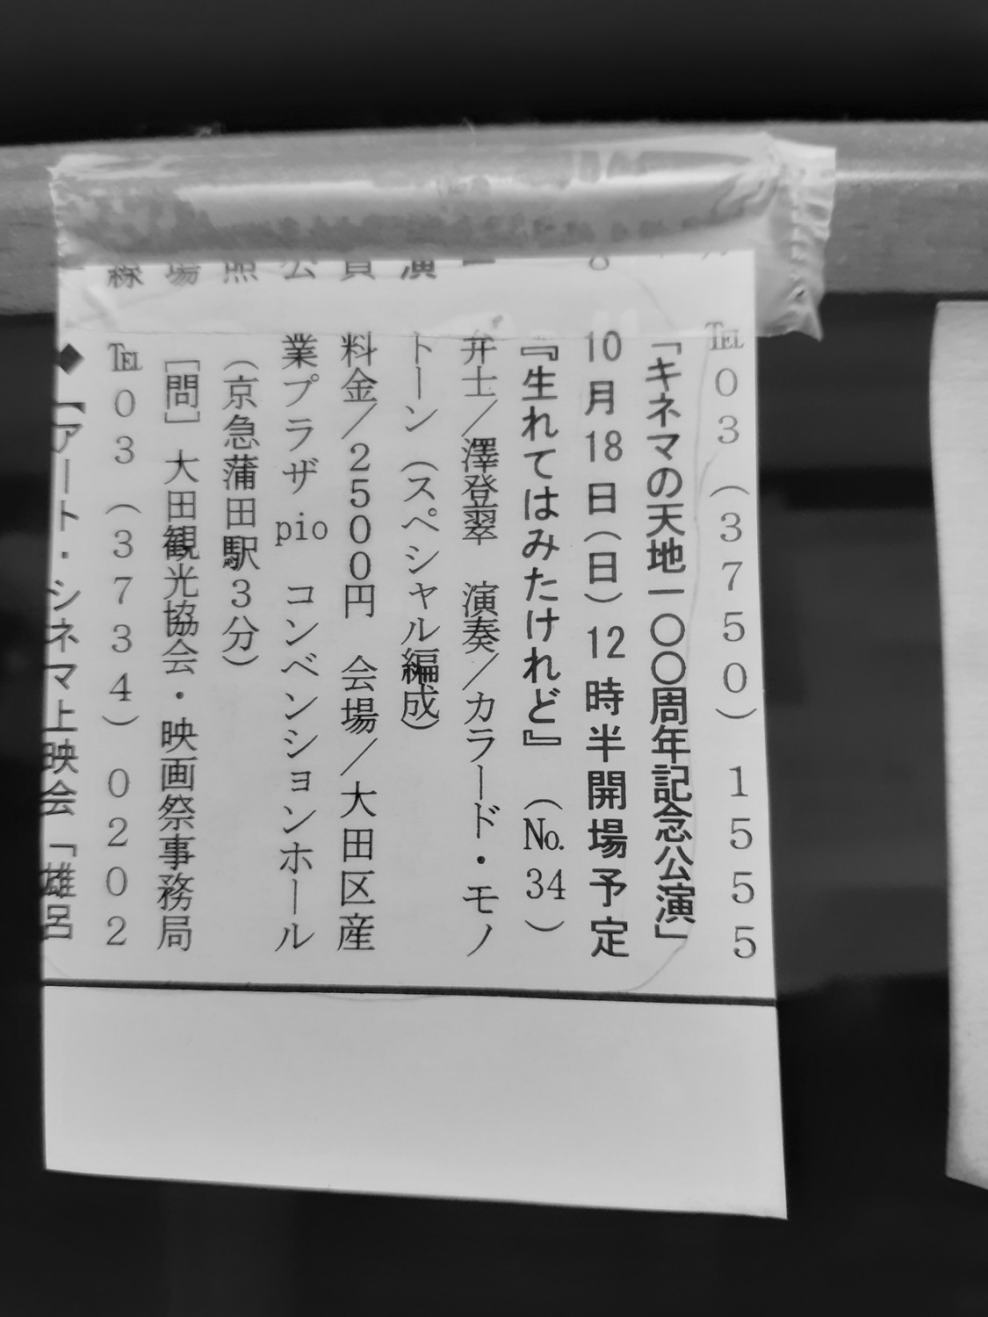 ℡03(3750)1555
「キネマの天地一〇〇周年記念公演」
10月18日(日)12時半開場予定
『生れてはみたけれど』(№34)
弁士/澤登翠 演奏/カラード・モノ
トーン(スペシャル編成)
料金/2500円 会場/大田区産
業プラザpio コンベンションホール
(京急蒲田駅3分)
[問]大田観光協会・映画祭事務局
℡03(3734)0202
◆【アート・シネマ上映会「雄呂